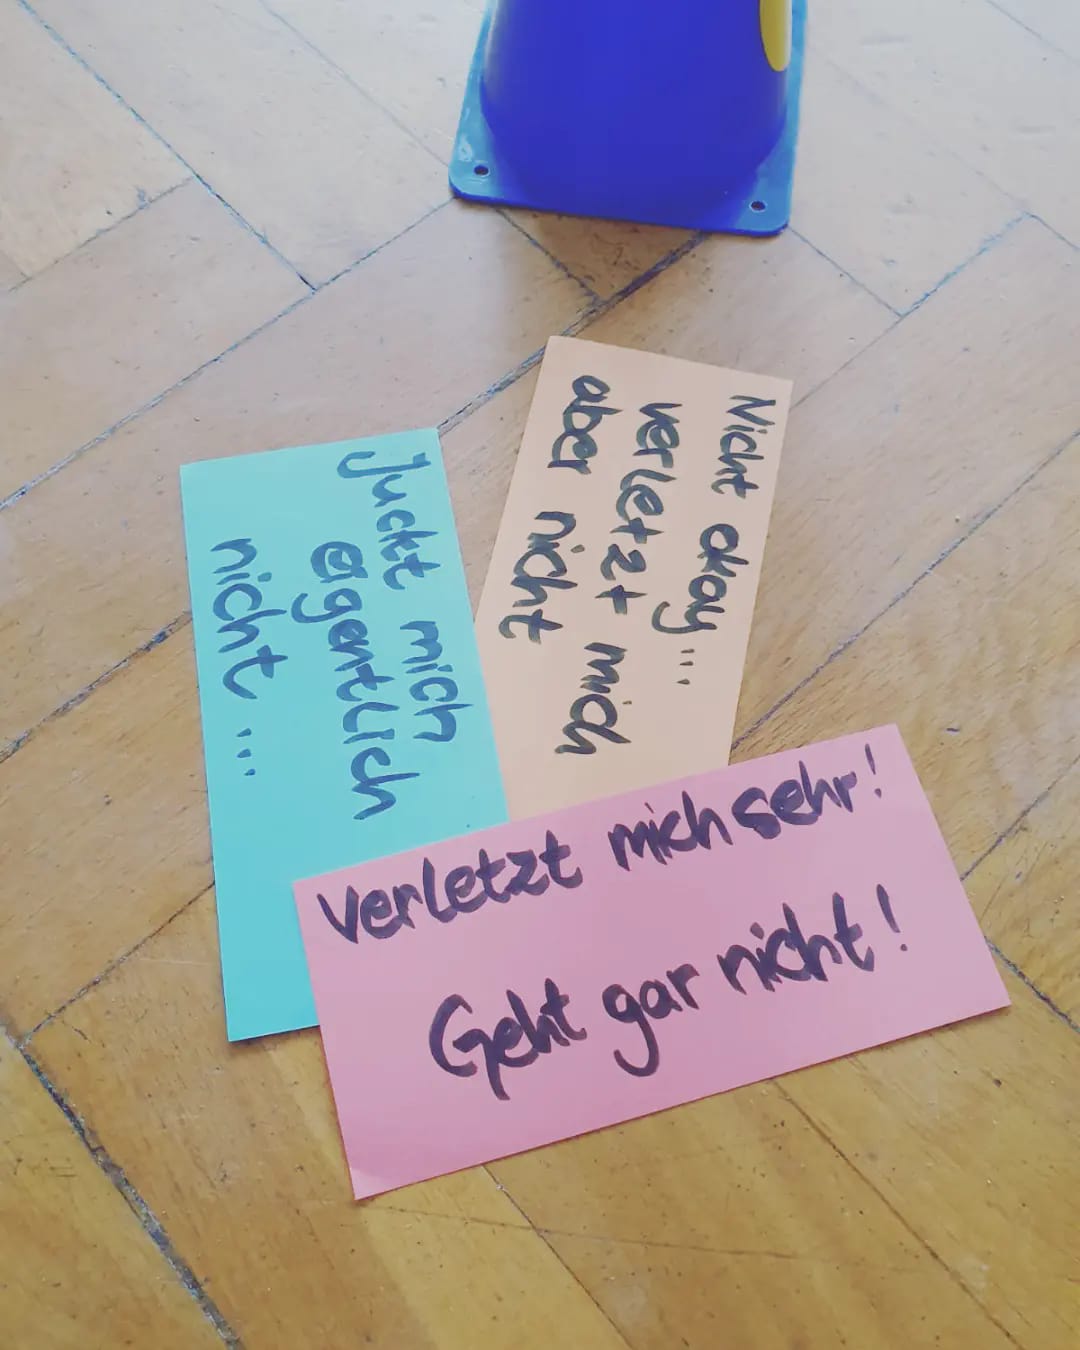 Juckt mich
eigentlich
nicht ...
Nicht okay ...
verletzt mich
aber nicht
Verletzt mich sehr!
Geht gar nicht!